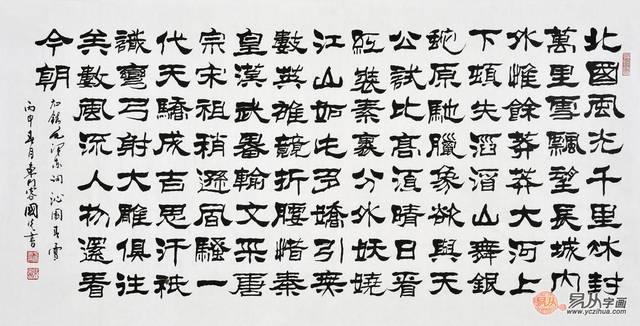 北國風光千里冰封
萬里雪飄望長城內
外惟餘莽莽大河上
下頓失滔滔山舞銀
蛇原馳臘象欲與天
公試比高須晴日看
紅裝素裹分外妖嬈
江山如此多嬌引無
數英雄競折腰惜秦
皇漢武畧輸文采唐
宗宋祖稍遜風騷一
代天驕成吉思汗祇
識彎弓射大雕俱往
矣數風流人物還看
今朝
右錄毛澤東詞沁園春雪
丙申春月國書
易从字画
www.yczihua.com